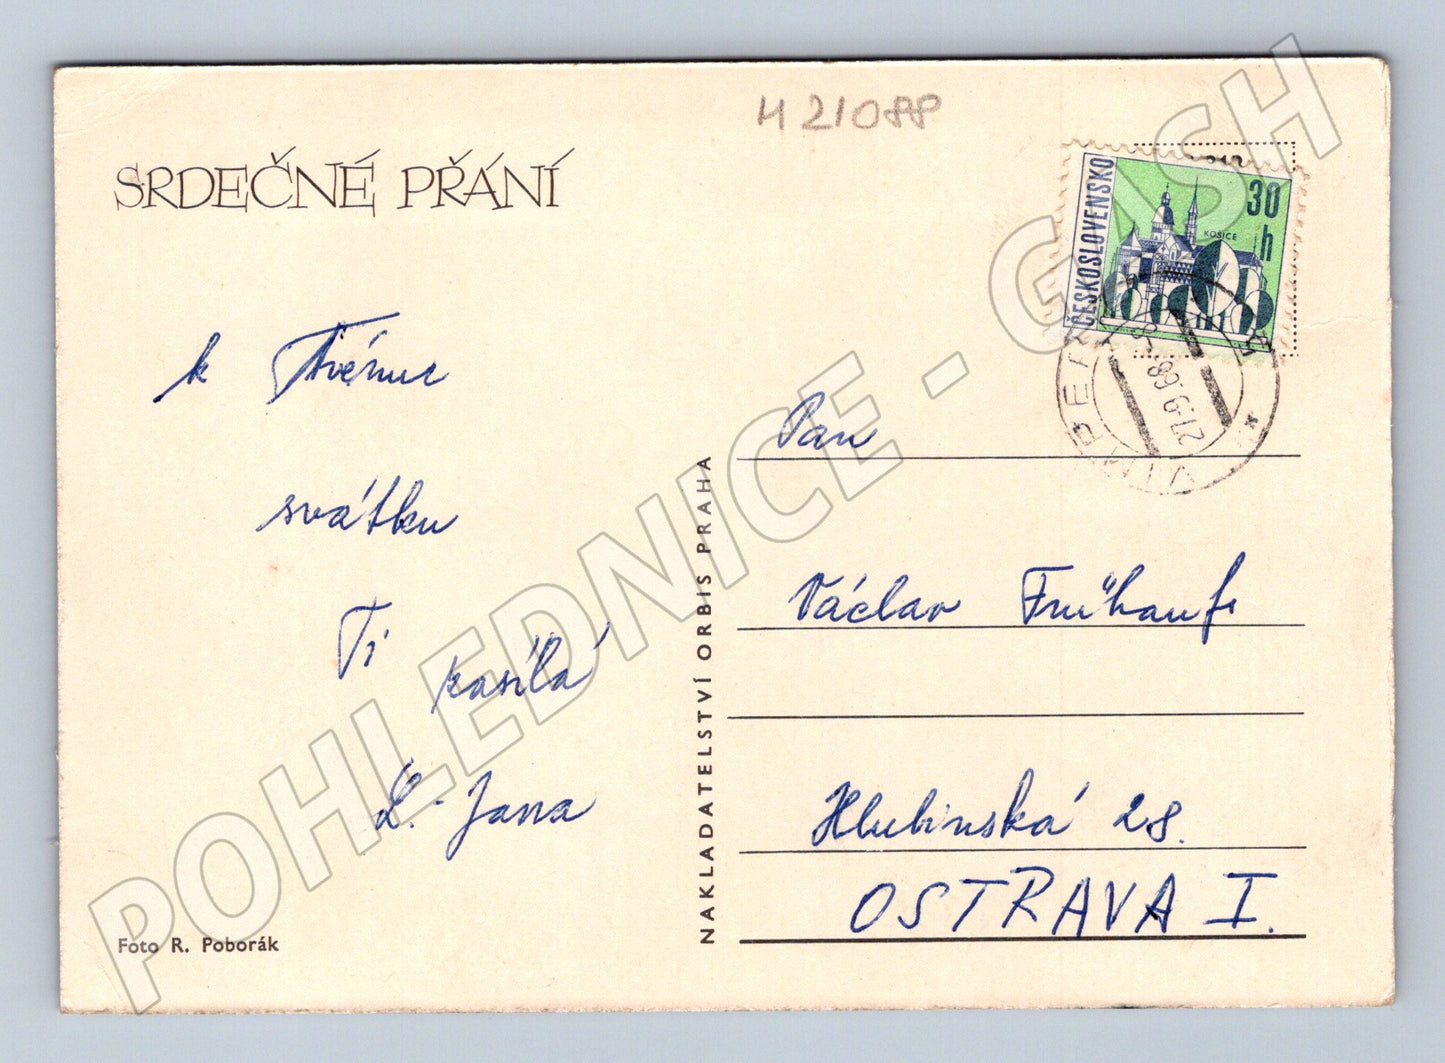 H 21088
SRDEČNÉ PŘÁNÍ
ČESKOSLOVENSKO
30 h
KOŠICE
27.9.68
VIMPERK
k Tvému
svátku
Ti zasílá
L. Jana
Foto R. Poborák
NAKLADATELSTVÍ ORBIS PRAHA
Pan
Václav Frühauf
Hlubinská 28.
OSTRAVA I.
POHLEDNICE - GASH